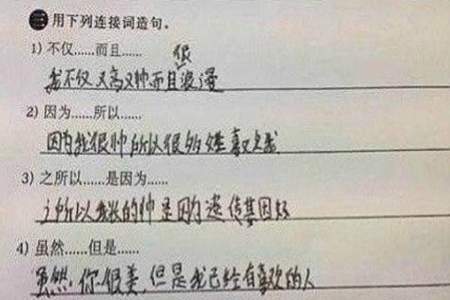 三 用下列连接词造句。
1) 不仅……而且……
我不仅又高又帅而且很浪漫
2) 因为……所以……
因为我很帅所以很多姓喜欢我
3) 之所以……是因为……
之所以我长的帅是因为遗传基因好
4) 虽然……但是……
虽然你很美,但是我已经有喜欢的人